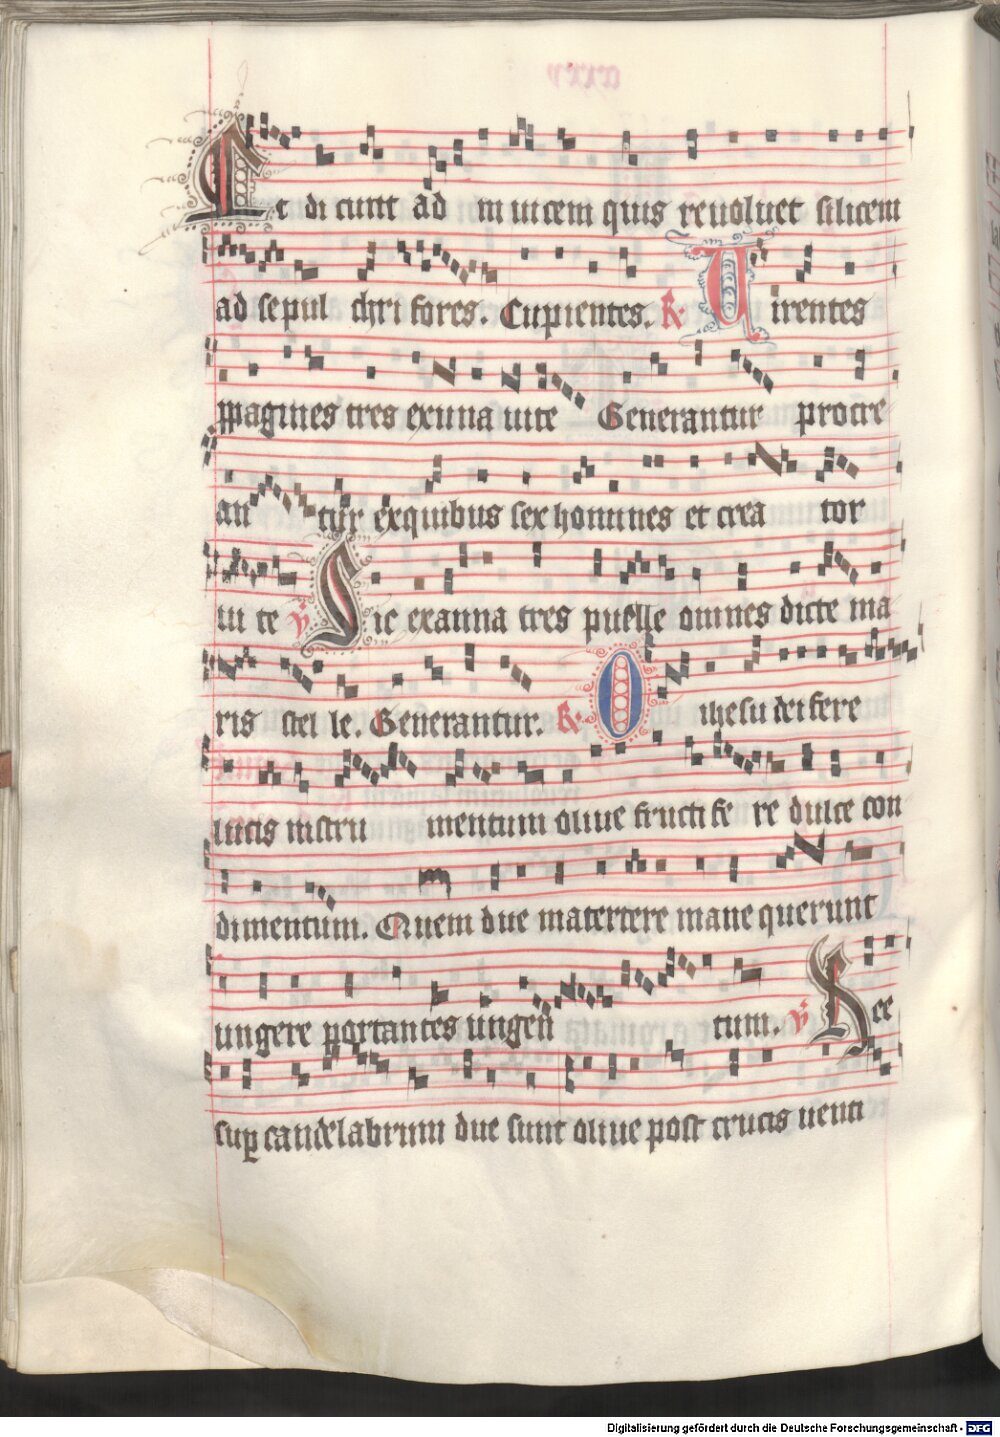 Et di cunt ad in uicem quis reuoluet silicem
ad sepul chri fores. Cupientes. R. Uirentes
ppagines tres ex una uite Generantur procre
an tur ex quibus sex homines et crea tor
ui te v Sic ex anna tres puelle omnes dicte ma
ris stel le. Generantur. R. O ihesu dei fere
lucis instru mentum oliue fructi fe re dulce con
dimentum. Quem due matertere mane querunt
ungere portantes ungen tum. v Hee
sup candelabrum due sunt oliue post crucis uenti
Digitalisierung gefördert durch die Deutsche Forschungsgemeinschaft - DFG